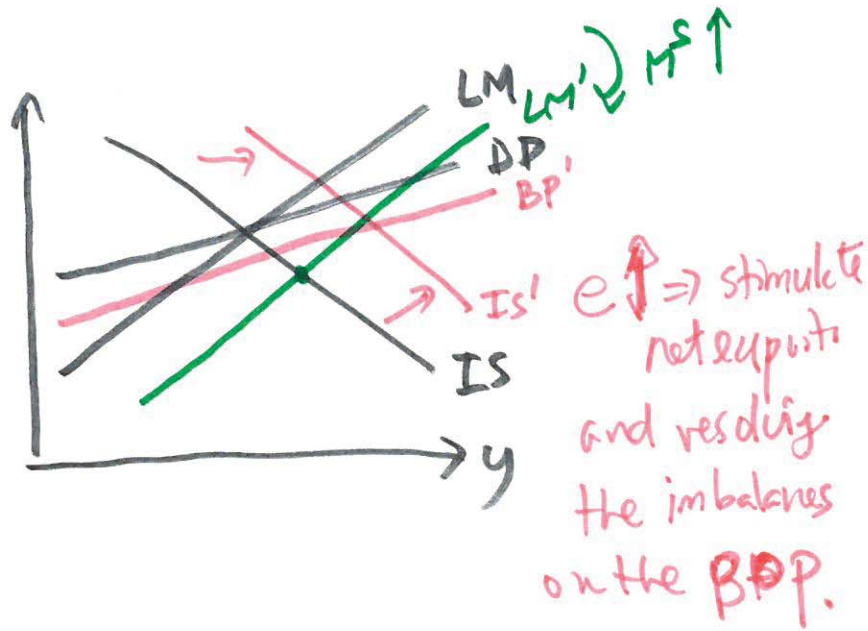 LM
LM' M^S ↑
DP
BP'
IS'
IS
y
e ↑ ⇒ stimulate
net exports
and resolving
the imbalances
on the BOP.